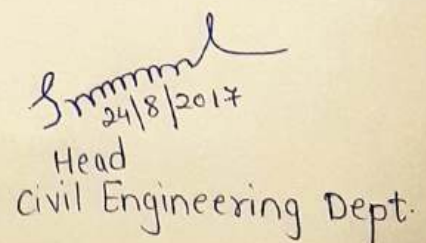 24/8/2017
Head
Civil Engineering Dept.